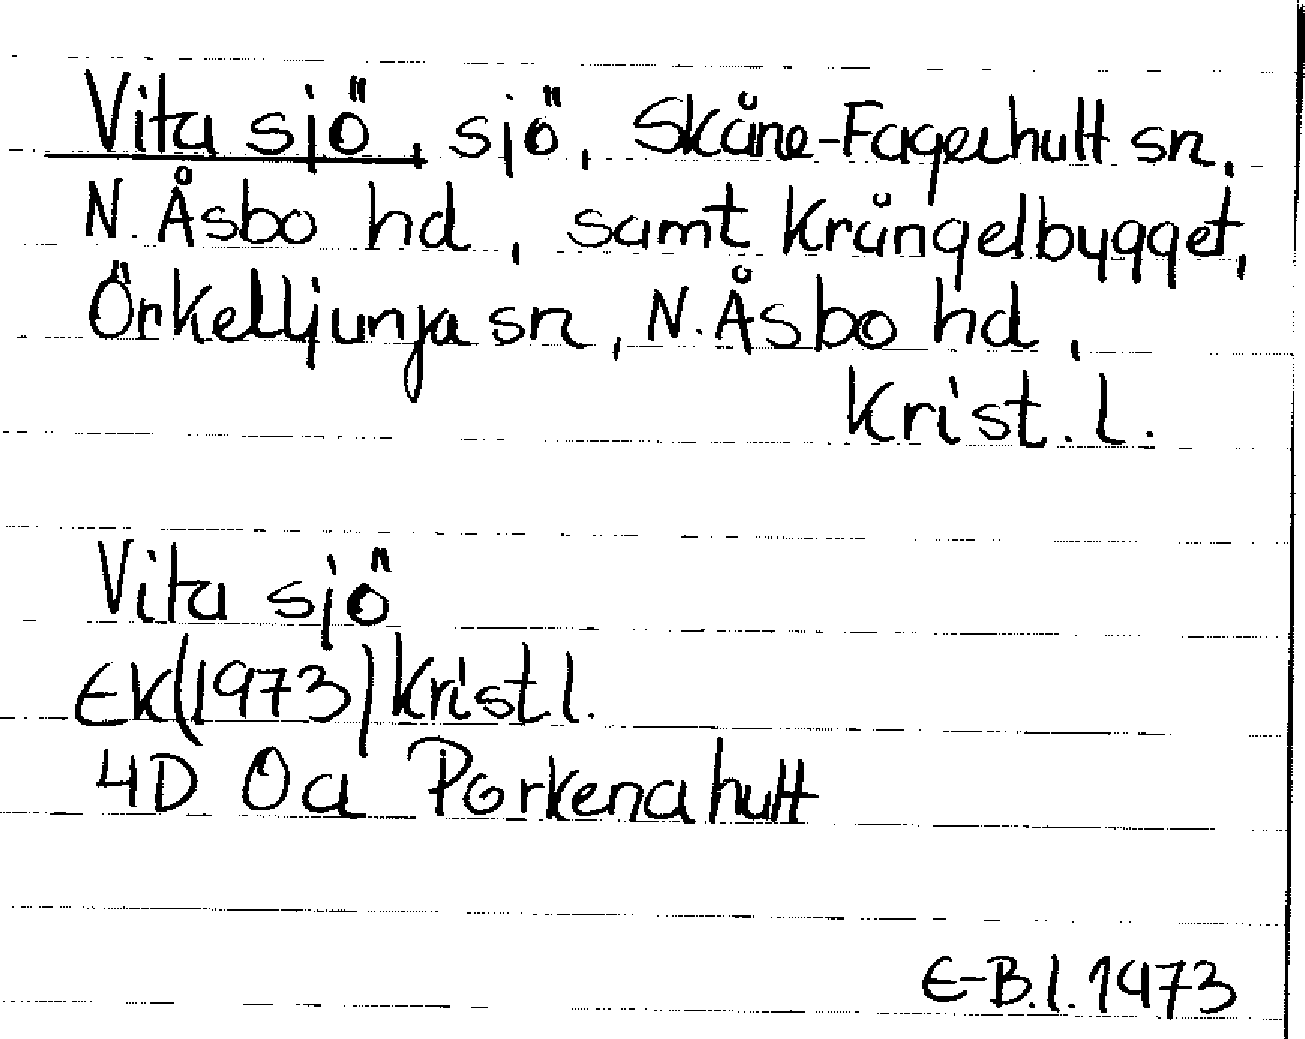 Vita sjö, sjö, Skåne-Fagerhult sn,
N. Åsbo hd, samt Krångelbygget,
Örkelljunja sn, N. Åsbo hd,
Krist. l.
Vita sjö
EK(1973) Krist l.
4D Oa Porkenahult
E-B.l. 1973